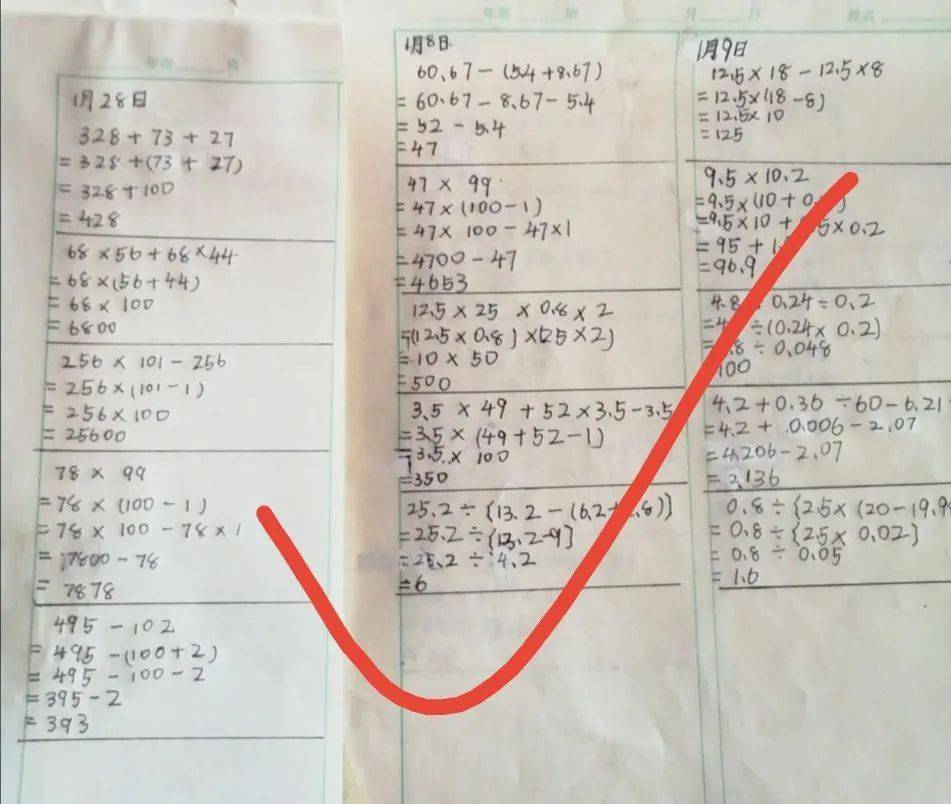 1月28日
328+73+27
=328+(73+27)
=328+100
=428
68×56+68×44
=68×(56+44)
=68×100
=6800
256×101-256
=256×(101-1)
=256×100
=25600
78×99
=78×(100-1)
=78×100-78×1
=7800-78
=7878
495-102
=495-(100+2)
=495-100-2
=395-2
=393
1月8日
60.67-(5.4+8.67)
=60.67-8.67-5.4
=52-5.4
=47
47×99
=47×(100-1)
=47×100-47×1
=4700-47
=4653
12.5×25×0.8×2
=(12.5×0.8)×(25×2)
=10×50
=500
3.5×49+52×3.5-3.5
=3.5×(49+52-1)
=3.5×100
=350
25.2÷{13.2-(6.2+.8)]
=25.2÷{13.2-9]
=25.2÷4.2
=6
1月9日
12.5×18-12.5×8
=12.5×(18-8)
=12.5×10
=125
9.5×10.2
=9.5×(10+0.)
=9.5×10+.5×0.2
=95+1.
=96.9
4.8 0.24÷0.2
=4. ÷(0.24×0.2)
=.8÷0.048
100
4.2+0.36÷60-6.21
=4.2+0.006-2.07
=4.206-2.07
=2.136
0.8÷{2.5×(20-19.9
=0.8÷{2.5×0.02]
=0.8÷0.05
=1.6